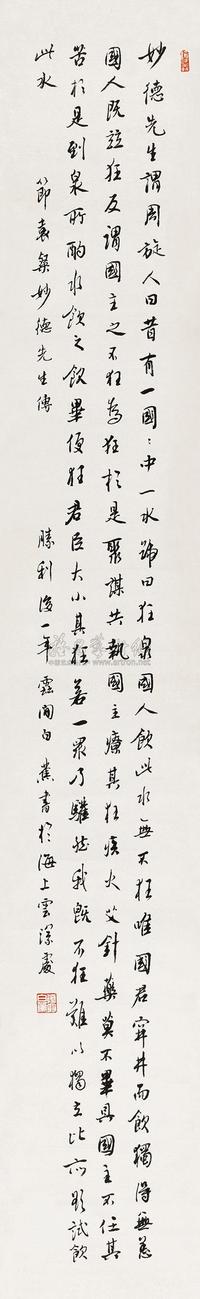 妙德先生謂周旋人曰昔有一國〻中一水號曰狂泉國人飲此水無不狂唯國君穿井而飲獨得無恙
國人既竝狂反謂國主之不狂為狂於是聚謀共執國主療其狂疾火艾針藥莫不畢具國主不任其
苦於是到泉所酌水飲之飲畢便狂君臣大小其狂若一眾乃驩然我既不狂難以獨立比亦欲試飲
此水
節袁粲妙德先生傳
勝利後一年雲間白蕉書於海上雲深處